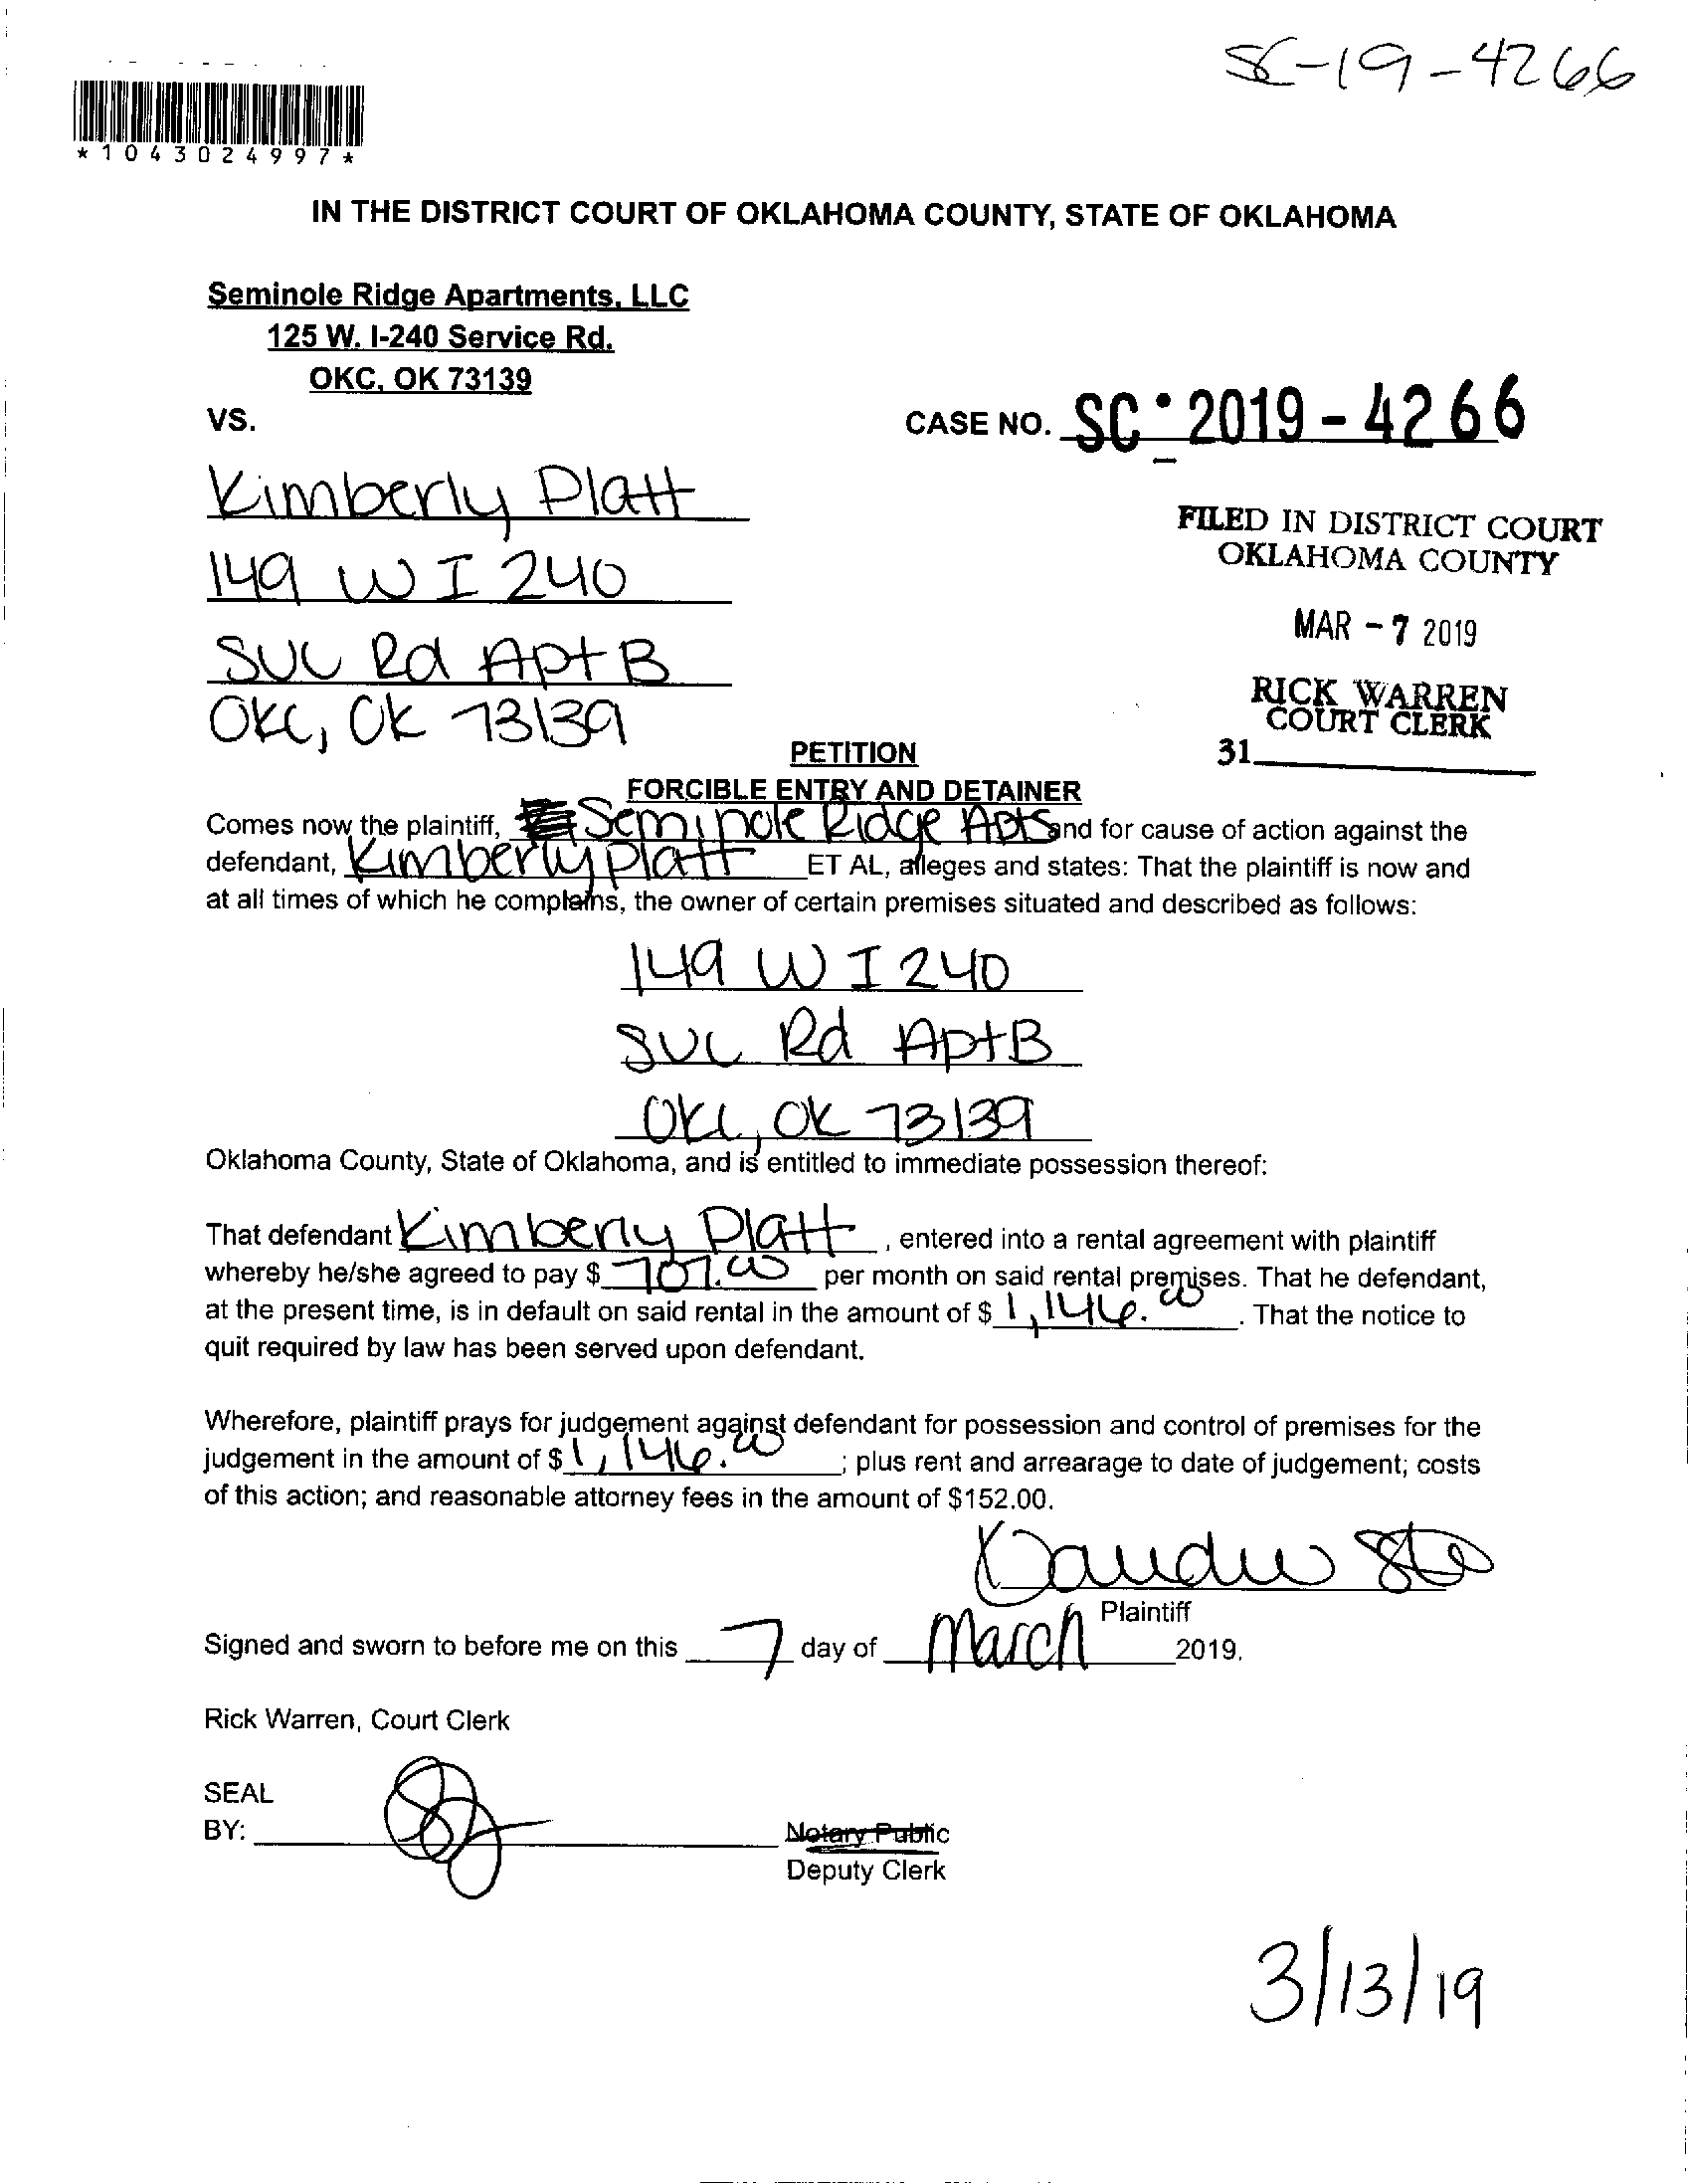 SC-19-4266
*1043024997*
IN THE DISTRICT COURT OF OKLAHOMA COUNTY, STATE OF OKLAHOMA
Seminole Ridge Apartments, LLC
125 W. I-240 Service Rd.
OKC, OK 73139
VS.
CASE NO. SC 2019-4266
Kimberly Platt
149 W I 240
SVC Rd Apt B
OKC, OK 73139
FILED IN DISTRICT COURT
OKLAHOMA COUNTY
MAR - 7 2019
RICK WARREN
COURT CLERK
31
PETITION
FORCIBLE ENTRY AND DETAINER
Comes now the plaintiff, Seminole Ridge Apts and for cause of action against the
defendant, Kimberly Platt ET AL, alleges and states: That the plaintiff is now and
at all times of which he complains, the owner of certain premises situated and described as follows:
149 W I 240
SVC Rd Apt B
OKC, OK 73139
Oklahoma County, State of Oklahoma, and is entitled to immediate possession thereof:
That defendant Kimberly Platt, entered into a rental agreement with plaintiff
whereby he/she agreed to pay $ 707.00 per month on said rental premises. That he defendant,
at the present time, is in default on said rental in the amount of $ 1,146.00. That the notice to
quit required by law has been served upon defendant.
Wherefore, plaintiff prays for judgement against defendant for possession and control of premises for the
judgement in the amount of $ 1,146.00; plus rent and arrearage to date of judgement; costs
of this action; and reasonable attorney fees in the amount of $152.00.
Plaintiff
Signed and sworn to before me on this 7 day of March 2019.
Rick Warren, Court Clerk
SEAL
BY:
Notary Public
Deputy Clerk
3/13/19